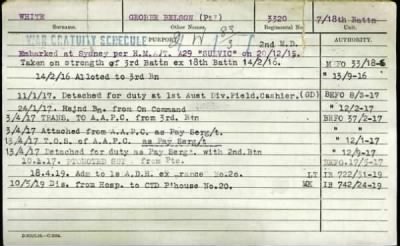 WHITE GEORGE BELSON (Pte) 3320 7/18th Battn
Surname. Other Names. Regimental No. Unit.
WAR GRATUITY SCHEDULE PURPORT. 2nd M.D. AUTHORITY.
Embarked at Sydney per H.M.A/T. A29 "SUEVIC" on 20/12/15.
Taken on strength of 3rd Battn ex 18th Battn 14/2/16. M FO 33/18-
14/2/16 Alloted to 3rd Bn " 13/9-16
11/1/17. Detached for duty at 1st Aust Div.Field.Cashier. (GD) BEFO 8/3-17
24/1/17. Rejnd Bn. from On Command " 12/2-17
3/4/17 TRANS. TO A.A.P.C. from 3rd. Btn BEFO 37/2-17
3/4/17 Attached from A.A.P.C. as Pay Serg/t
13/4/17 T.O.S. of A.A.P.C. as Pay Serg/t " 12/3-17
13/4/17 Detached for duty as Pay Sergt with 2nd.Btn " 12/3-17
10.4.17. PROMOTED SGT from Pte. BEFO. 17/5-17
18.4.19. Adm to 1s A.D.H. ex France No.20. LT IB 722/31-19
10/5/19 Dis. from Hosp. to CTD P'house No.20. MK IB 742/24-19